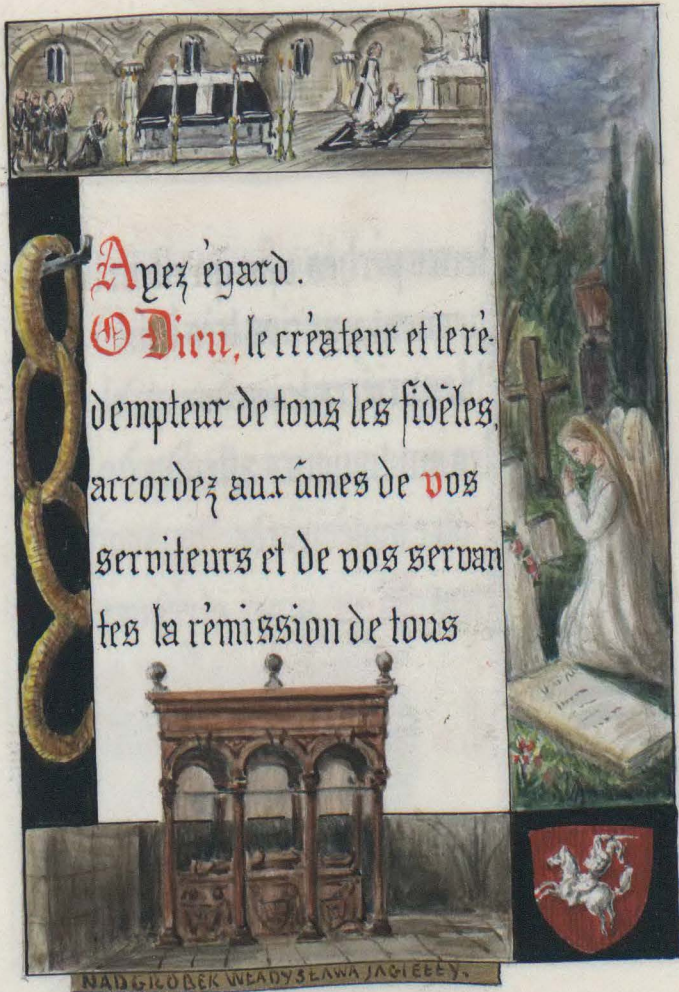 Ayez égard.
O Dieu, le créateur et le ré-
dempteur de tous les fidèles,
accordez aux âmes de vos
serviteurs et de vos servan
tes la rémission de tous
NADGROBEK WŁADYSŁAWA JAGIEŁŁY.